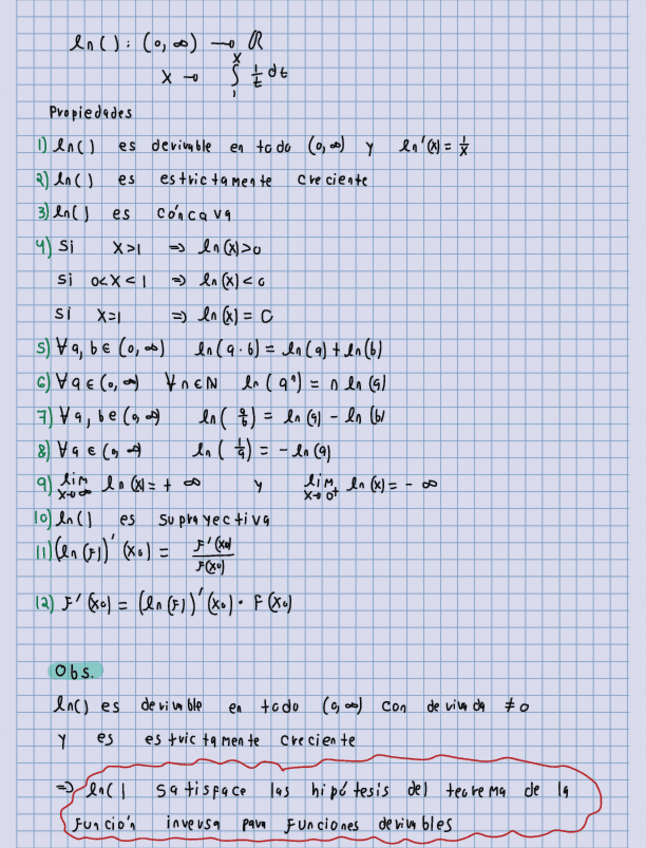 ln( ) : (0, ∞) → ℝ
x → ∫₁ˣ 1/t dt
Propiedades
1) ln( ) es derivable en todo (0, ∞) y ln'(x) = 1/x
2) ln( ) es estrictamente creciente
3) ln( ) es cóncava
4) Si x>1 ⇒ ln(x)>0
Si 0<x<1 ⇒ ln(x)<0
Si x=1 ⇒ ln(x) = 0
5) ∀a, b ∈ (0, ∞) ln(a·b) = ln(a) + ln(b)
6) ∀a ∈ (0, ∞) ∀n ∈ ℕ ln(aⁿ) = n ln(a)
7) ∀a, b ∈ (0, ∞) ln(a/b) = ln(a) - ln(b)
8) ∀a ∈ (0, ∞) ln(1/a) = - ln(a)
9) lim x→∞ ln(x) = + ∞ y lim x→0⁺ ln(x) = - ∞
10) ln( ) es suprayectiva
11) (ln(F))'(x₀) = F'(x₀)/F(x₀)
12) F'(x₀) = (ln(F))'(x₀) · F(x₀)
Obs.
ln() es derivable en todo (0, ∞) con derivada ≠0
y es estrictamente creciente
⇒ ln( ) satisface las hipótesis del teorema de la
Función inversa para Funciones derivables